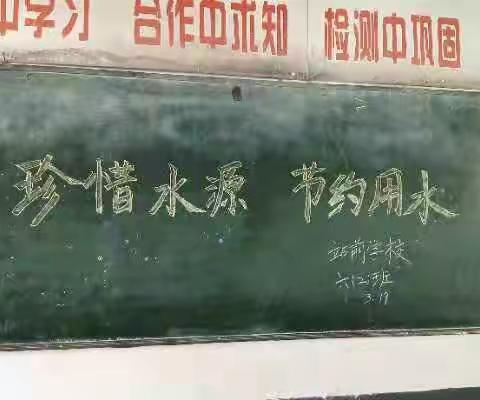 中学习 合作中求知 检测中巩固
珍惜水源 节约用水
站前学校
六(2)班
3.19